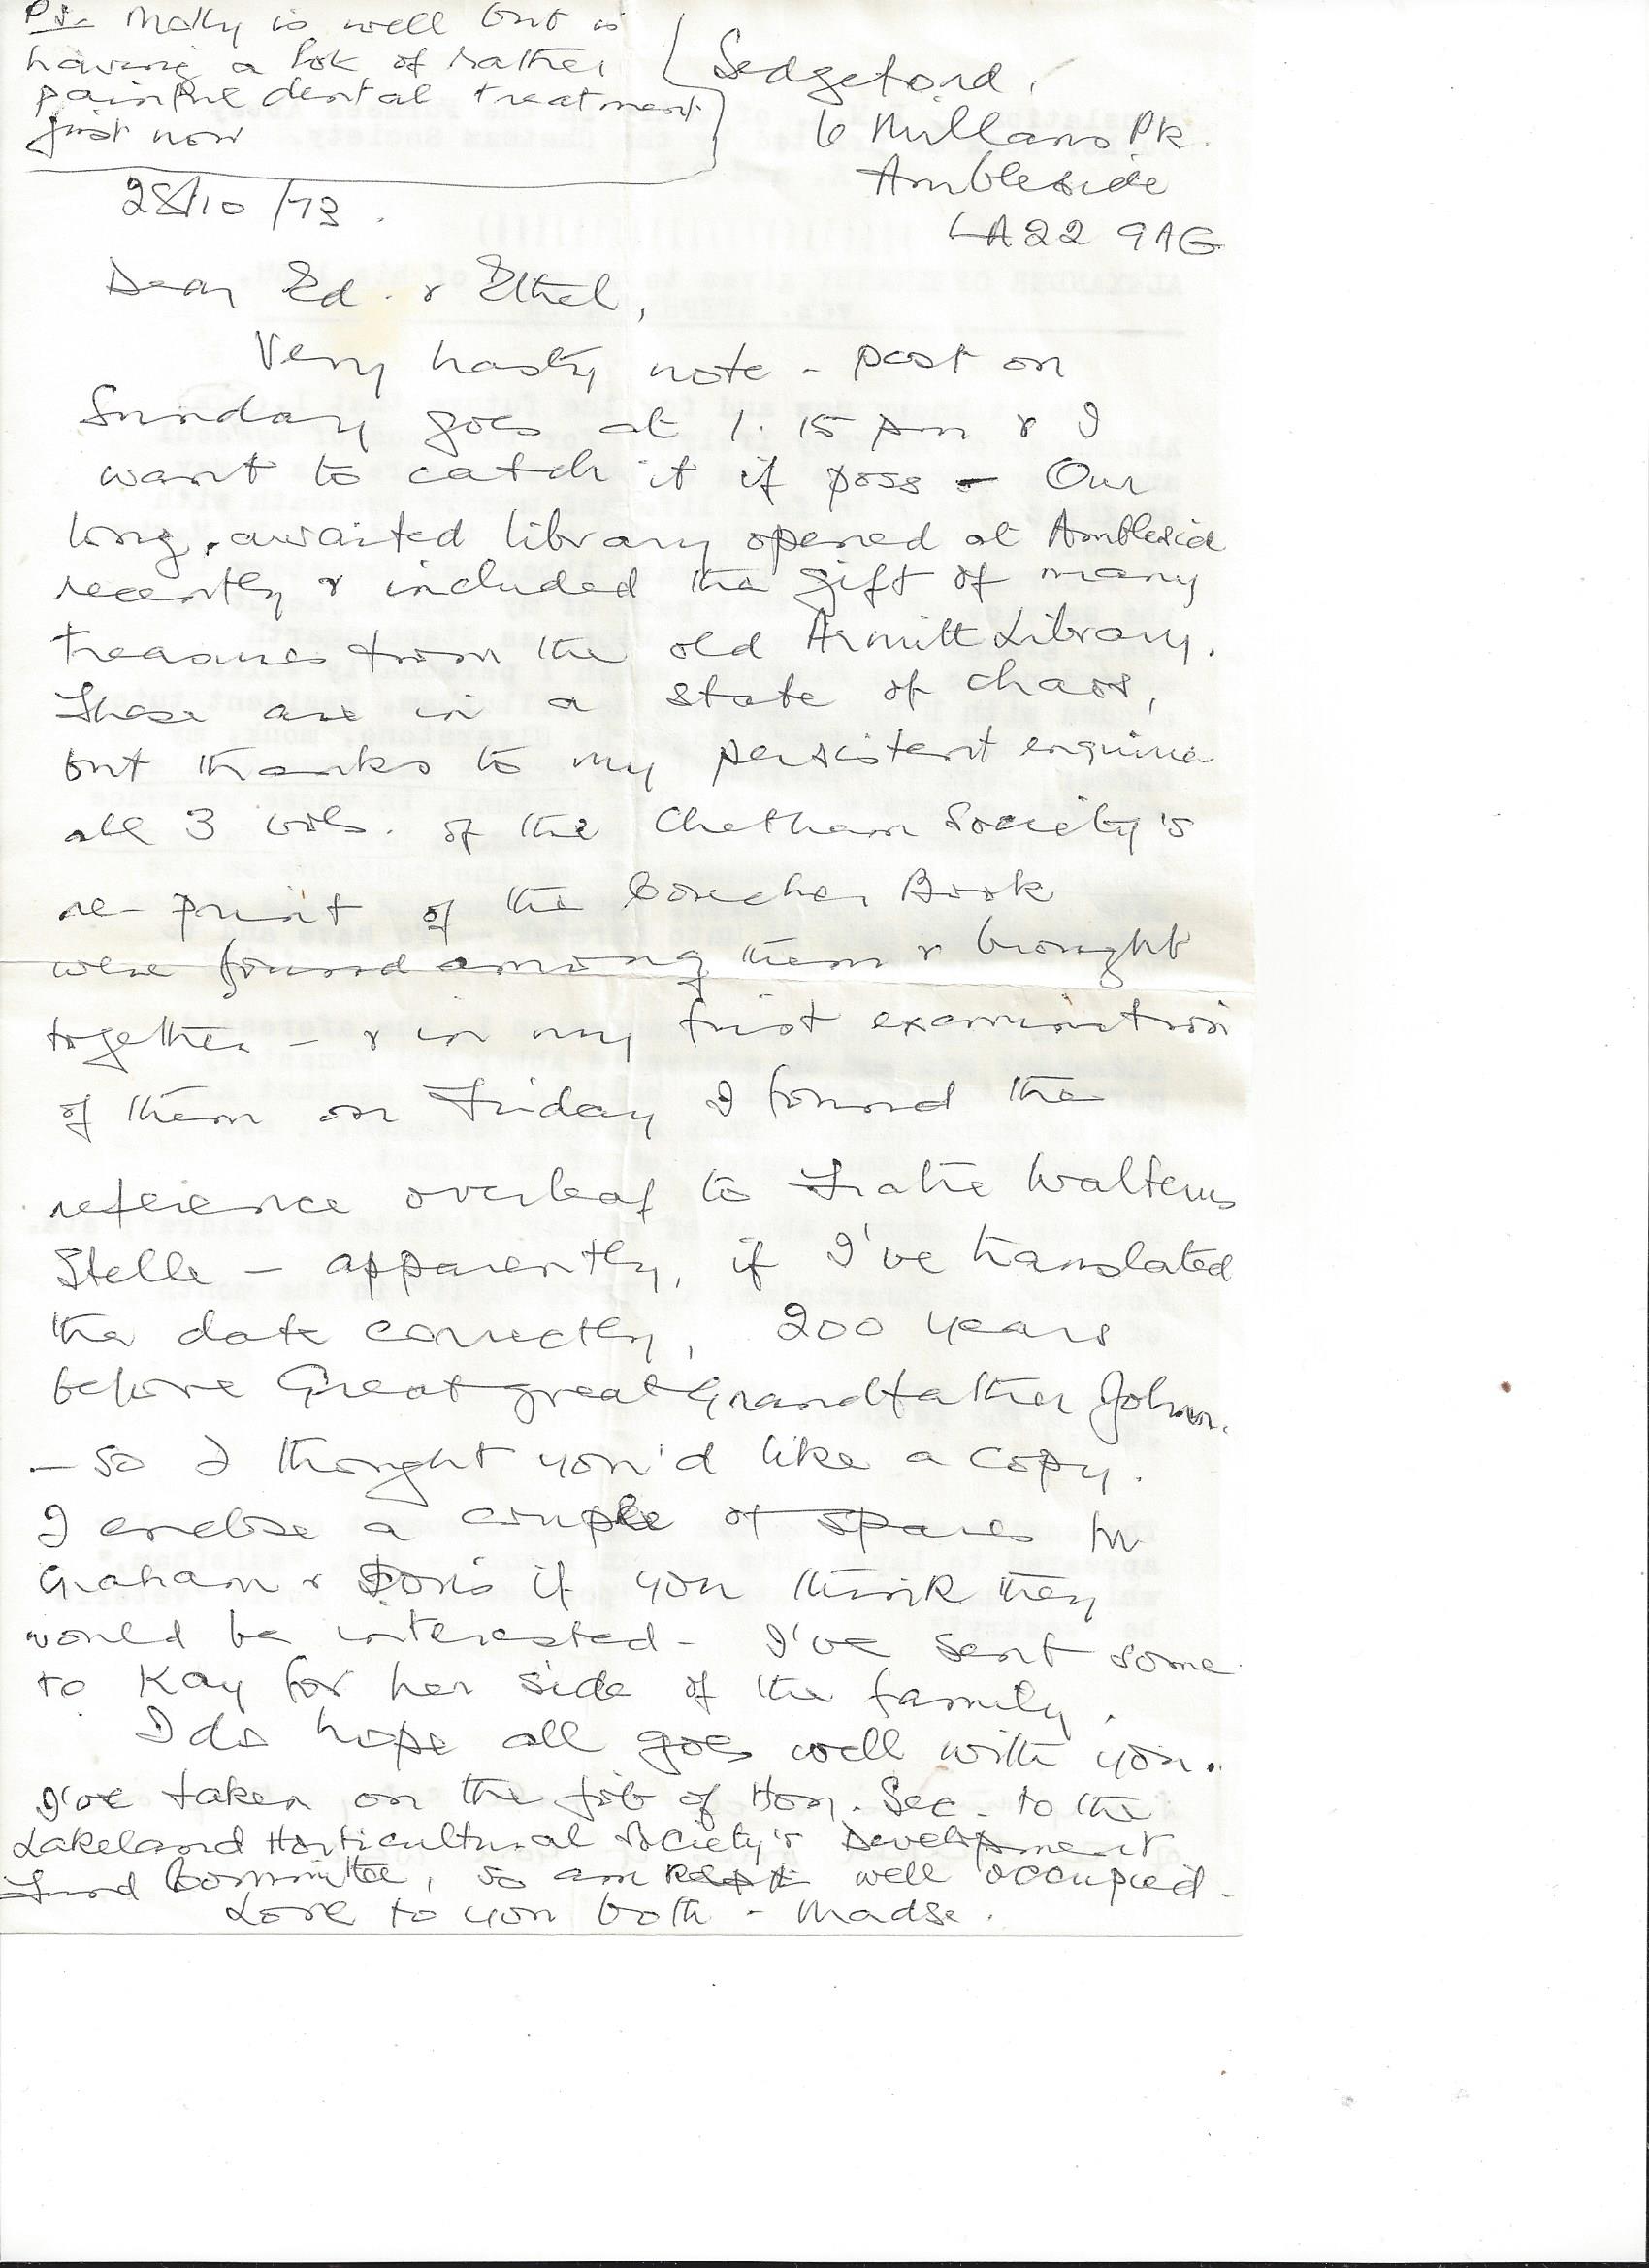 PS- Molly is well but is
having a lot of rather
painful dental treatment
just now
Sedgeford,
6 Millans Pk.
Ambleside
LA22 9AG
28/10/73.
Dear Ed. & Ethel,
Very hasty note - post on
Sunday goes at 1.15 pm & I
want to catch it if poss - Our
long-awaited library opened at Ambleside
recently & included the gift of many
treasures from the old Armitt Library.
These are in a state of chaos,
but thanks to my persistent enquiries
all 3 vols. of the Chetham Society's
re-print of the Coucher Book
were found among them & brought
together - & in my first examination
of them on Friday I found the
reference overleaf to Fratre Walterus
Stelle - apparently, if I've translated
the date correctly, 200 years
before Great great Grandfather John.
- so I thought you'd like a copy.
I enclose a couple of spares for
Graham & Doris if you think they
would be interested - I've sent some
to Kay for her side of the family.
I do hope all goes well with you.
I've taken on the job of Hon. Sec. to the
Lakeland Horticultural Society's Development
Fund Committee, so am kept well occupied.
Love to you both - Madge.